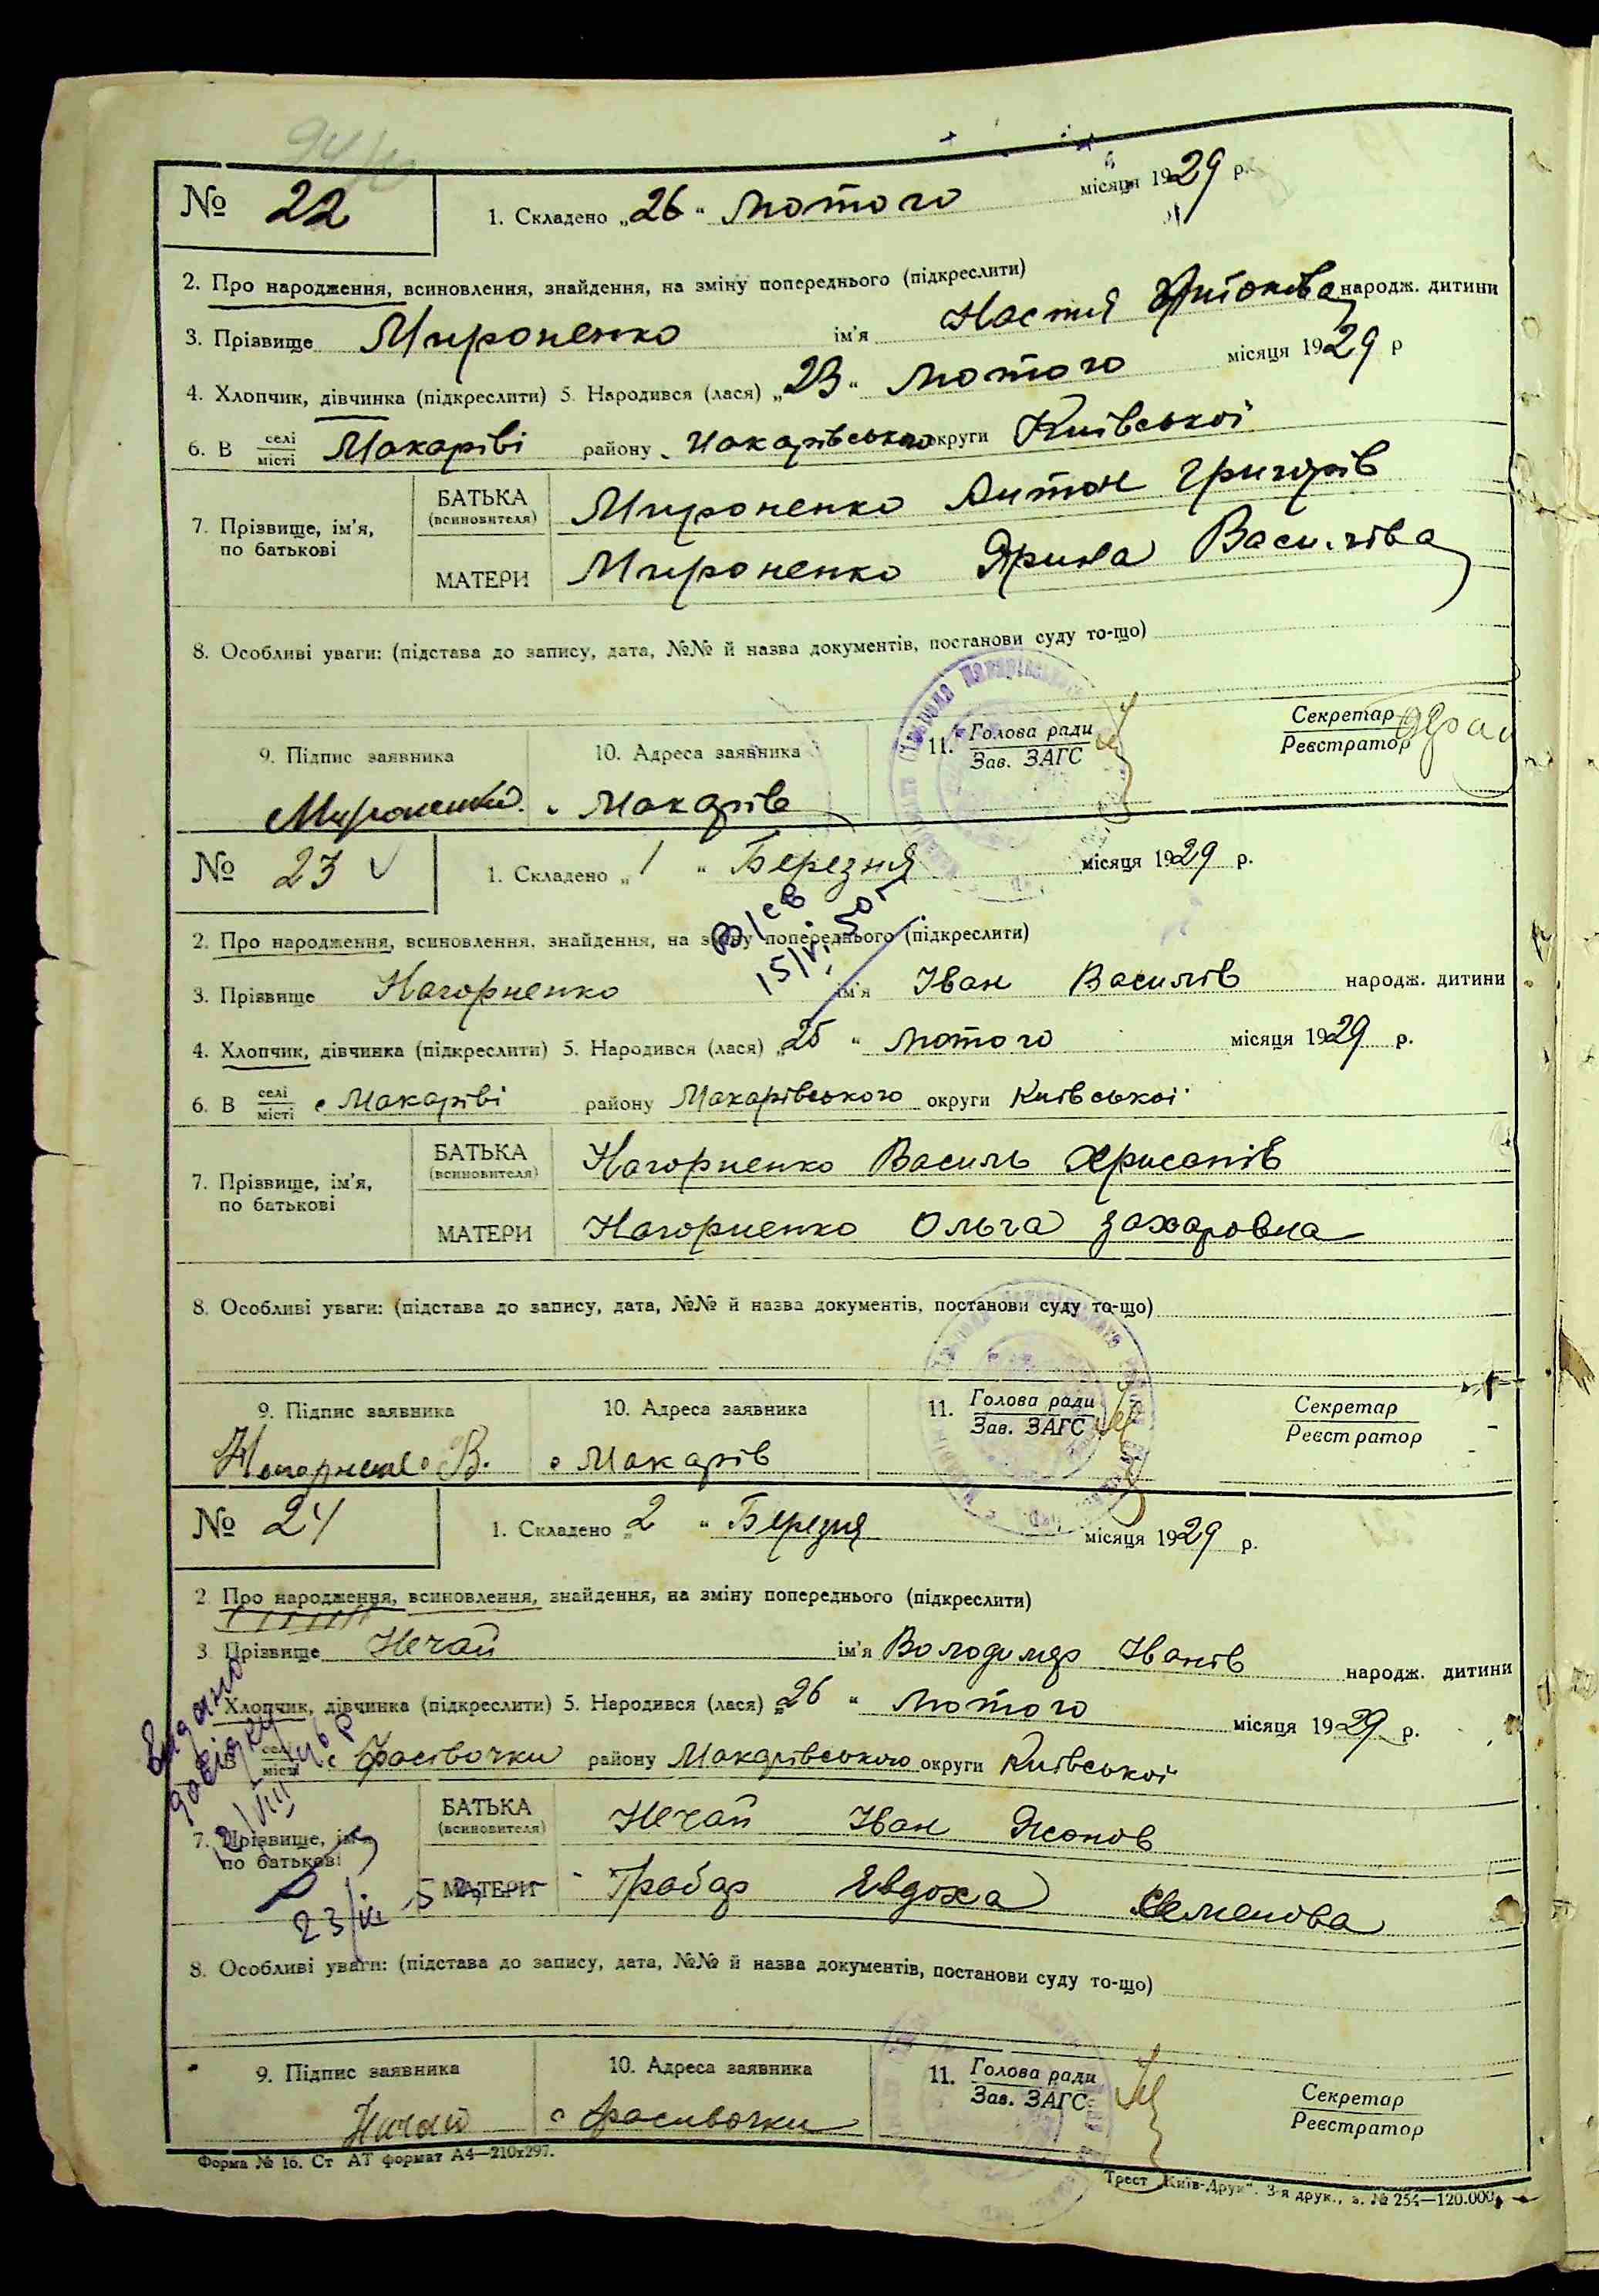 № 22
1. Складено „26“ Лютого місяця 1929 р.
2. Про народження, всиновлення, знайдення, на зміну попереднього (підкреслити)
3. Прізвище Мироненко ім'я Настя Антонова народж. дитини
4. Хлопчик, дівчинка (підкреслити) 5. Народився (лася) „23“ Лютого місяця 1929 р
6. В селі місті Макарові району Макарівського округи Київської
7. Прізвище, ім'я, по батькові
БАТЬКА (всиновителя) Мироненко Антон Григорів
МАТЕРИ Мироненко Ярина Василіва
8. Особливі уваги: (підстава до запису, дата, №№ й назва документів, постанови суду то-що)
9. Підпис заявника 10. Адреса заявника 11. Голова ради Зав. ЗАГС Секретар Реєстратор
Мироненко с Макарів
№ 23
1. Складено „1“ Березня місяця 1929 р.
2. Про народження, всиновлення, знайдення, на зміну попереднього (підкреслити)
3. Прізвище Нагорненко ім'я Іван Василів народж. дитини
4. Хлопчик, дівчинка (підкреслити) 5. Народився (лася) „25“ Лютого місяця 1929 р.
6. В селі місті с Макарові району Макарівського округи Київської
7. Прізвище, ім'я, по батькові
БАТЬКА (всиновителя) Нагорненко Василь Хрисанів
МАТЕРИ Нагорненко Ольга Захаровна
8. Особливі уваги: (підстава до запису, дата, №№ й назва документів, постанови суду то-що)
9. Підпис заявника 10. Адреса заявника 11. Голова ради Зав. ЗАГС Секретар Реєстратор
Нагорненко В. с Макарів
№ 24
1. Складено „2“ Березня місяця 1929 р.
2. Про народження, всиновлення, знайдення, на зміну попереднього (підкреслити)
3. Прізвище Нечай ім'я Володимир Іванів народж. дитини
Хлопчик, дівчинка (підкреслити) 5. Народився (лася) „26“ Лютого місяця 1929 р.
В селі місті с Фасівочки району Макарівського округи Київської
Видано довідку
7. Прізвище, ім'я, по батькові
БАТЬКА (всиновителя) Нечай Іван Ясонов
МАТЕРИ Грабар Євдоха Семенова
8. Особливі уваги: (підстава до запису, дата, №№ й назва документів, постанови суду то-що)
9. Підпис заявника 10. Адреса заявника 11. Голова ради Зав. ЗАГС Секретар Реєстратор
Нечай с Фасивочки
Форма № 16. Ст АТ формат А4—210х297.
Трест „Київ-Друк“. 3-я друк., з. № 254—120.000.